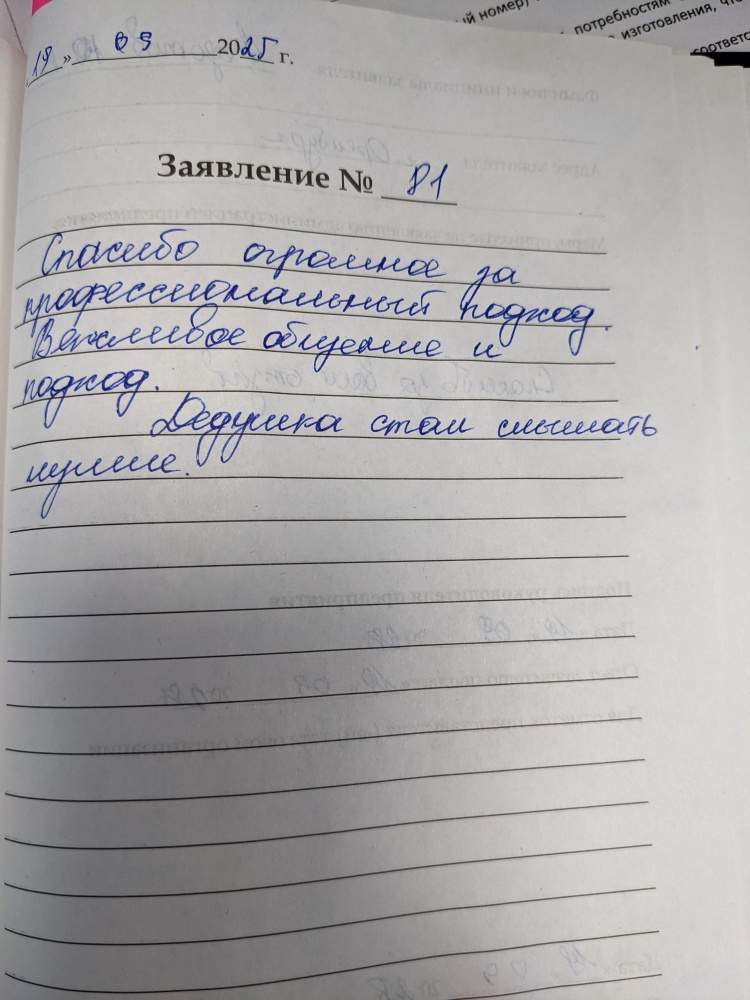 ый номер)
потребностям
изготовления, что
соответс
19 » 09 2025 г.
Заявление № 81
Спасибо огромное за
профессиональный подход.
Вежливое общение и
подход.
Дедушка стал слышать
лучше.